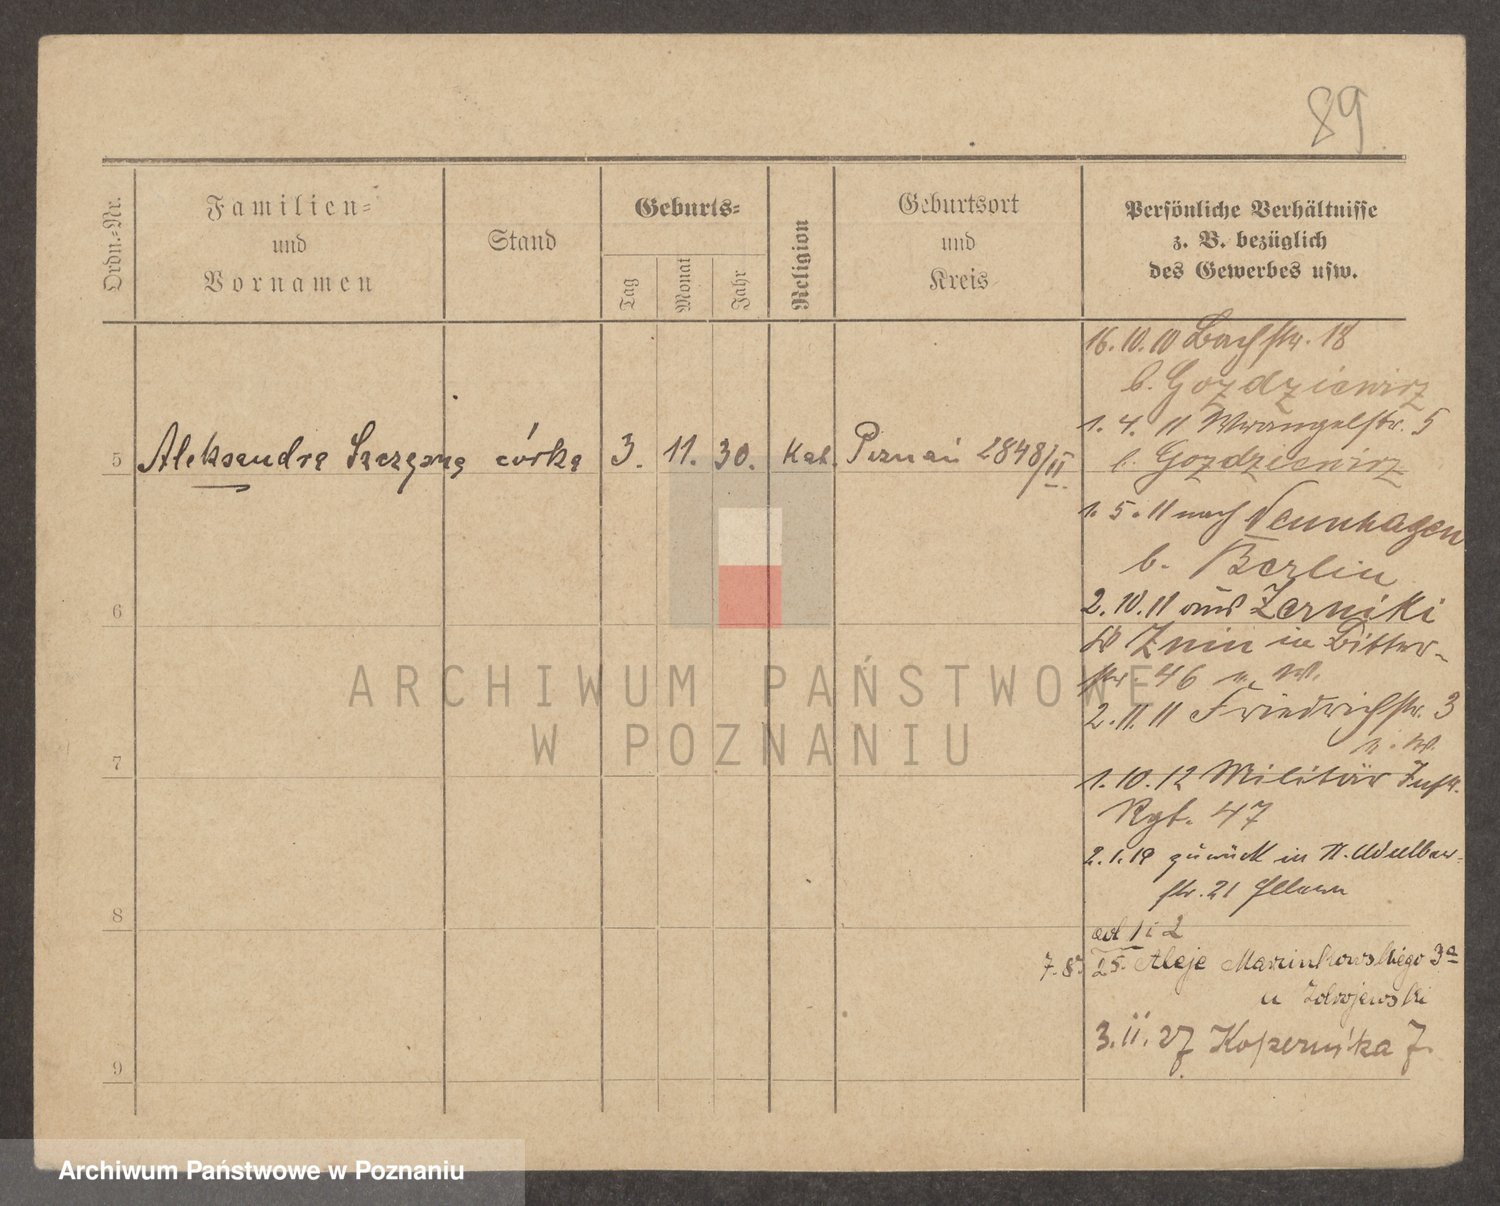 89
Ordn.-Nr.
Familien-
und
Vornamen
Stand
Geburts-
Tag
Monat
Jahr
Religion
Geburtsort
und
Kreis
Persönliche Verhältnisse
z. B. bezüglich
des Gewerbes usw.
5 Aleksandra córka 3. 11. 30. Kat. Poznań 2848/II
6
7
8
9
16.10.10 Bachstr. 18
b. Gozdziewicz
1. 4. 11 Wrangelstr. 5
b. Gozdziewicz
1. 5. 11 nach Neuenhagen
b. Berlin
2.10.11 aus Zerniki
Kr Znin in Ritter-
str. 46 n. W.
2.11.11 Friedrichstr. 3
n. W.
1.10.12 Militär Inftr.
Rgt. 47
2.1.19 zurück in
str. 21
ad 1 i 2
7.8. 25. Aleje Marcinkowskiego 3a
u Zdrojewski
3.11.27 Kopernika 7.
ARCHIWUM PAŃSTWOWE
W POZNANIU
Archiwum Państwowe w Poznaniu